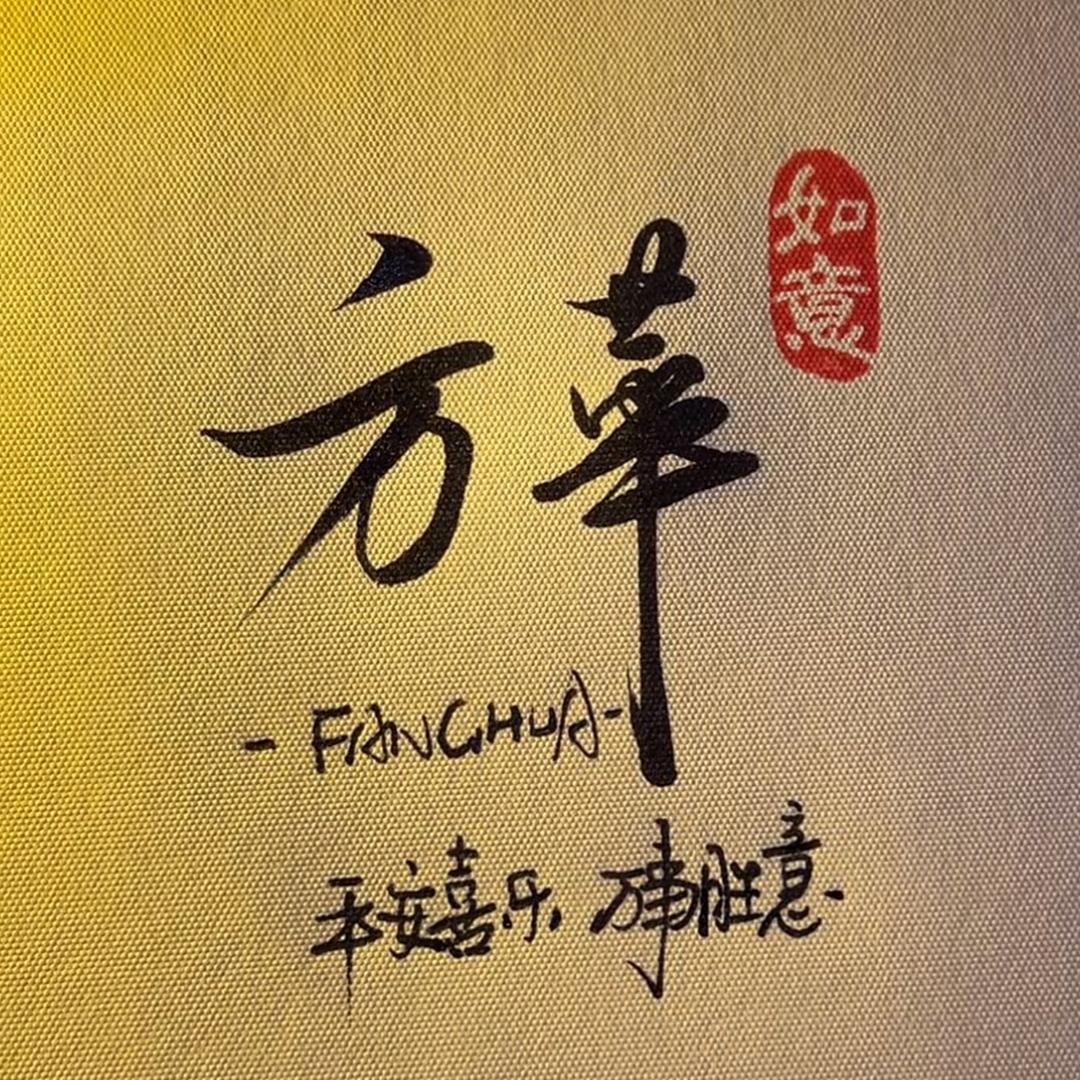 方華
如意
- FANGHUA -
平安喜乐 万事胜意